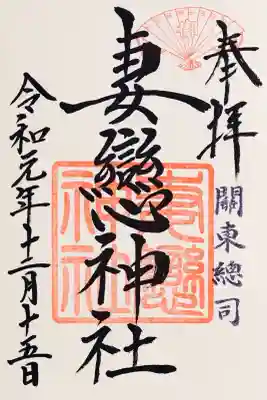 奉拝
關東總司
妻戀神社
令和元年十二月十五日